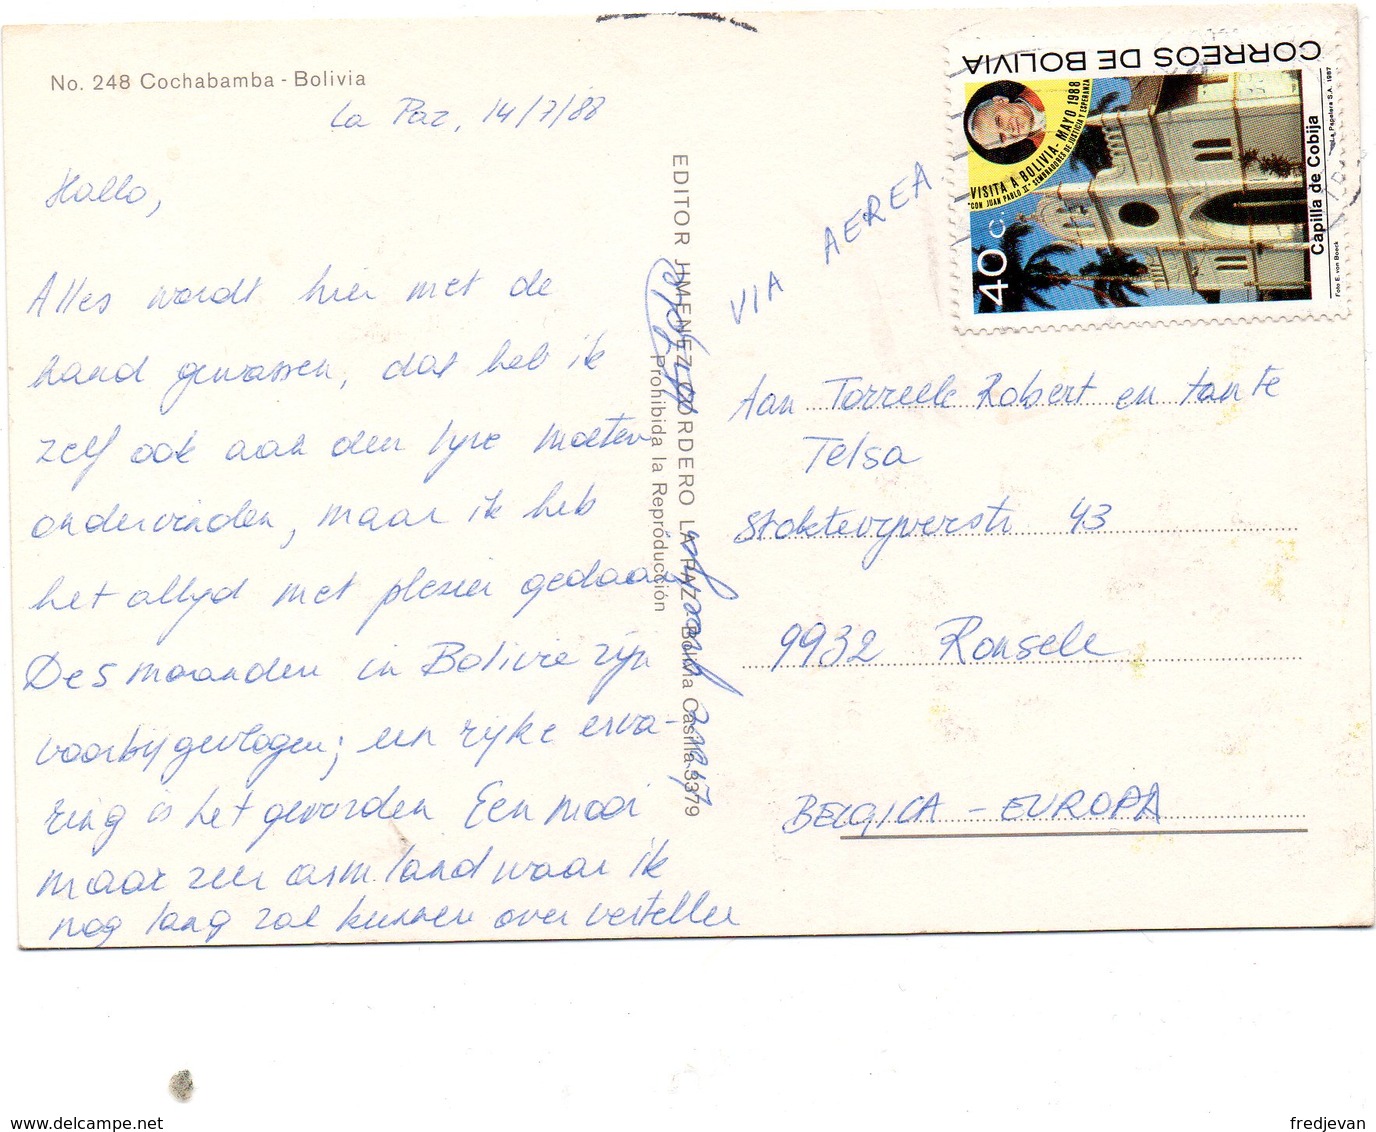 No. 248 Cochabamba - Bolivia
La Paz, 14/7/88
Hallo,
Alles wordt hier met de
hand gewassen, dat heb ik
zelf ook aan den lyve moeten
ondervinden, maar ik heb
het altyd met plezier gedaan
De 5 maanden in Bolivie zijn
voorbijgevlogen; een rijke erva-
ring is het geworden Een mooi
maar zeer arm land waar ik
nog lang zal kunnen over vertellen
EDITOR JIMENEZ CORDERO LA PAZ Bolivia Casilla 3379
Prohibida la Reproducción
VIA AEREA
CORREOS DE BOLIVIA
VISITA A BOLIVIA - MAYO 1988
"CON JUAN PABLO II" SEMBRADORES DE JUSTICIA Y ESPERANZA
40 c.
Capilla de Cobija
Foto E. von Boeck
La Papelera S.A. 1987
Aan Torreele Robert en tante
Telsa
43
9932 Ronsele
BELGICA - EUROPA
www.delcampe.net
fredjevan